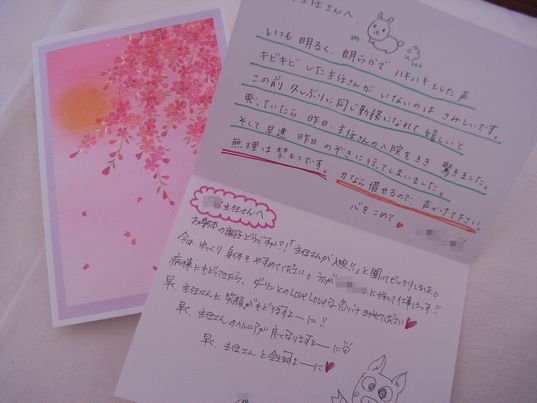 主任さんへ、
いつも明るく、朗らかで ハキハキとした声
キビキビした主任さんが いないのは さみしいです。
この前 久しぶりに同じ勤務になれて嬉しいと
思っていたら 昨日、主任さんの入院をきき 驚きました。
そして早速 昨日 のぞきに行ってしまいました。
無理は禁もつです。 力なら 借せるので、声かけて下さい。
心をこめて
主任さんへ
お身体の調子どうですか?!「主任さんが入院!!」と聞いてビックリしました。
今は ゆっくり 身体を やすめてください。
病棟にもどってきたら、ダーリンとのLove Loveな
早く、主任さんに 笑顔が もどりますよーに!!
早く、主任さんのヘルニアが 良くなりますよーーに
早く、主任さんと 会えますよーに